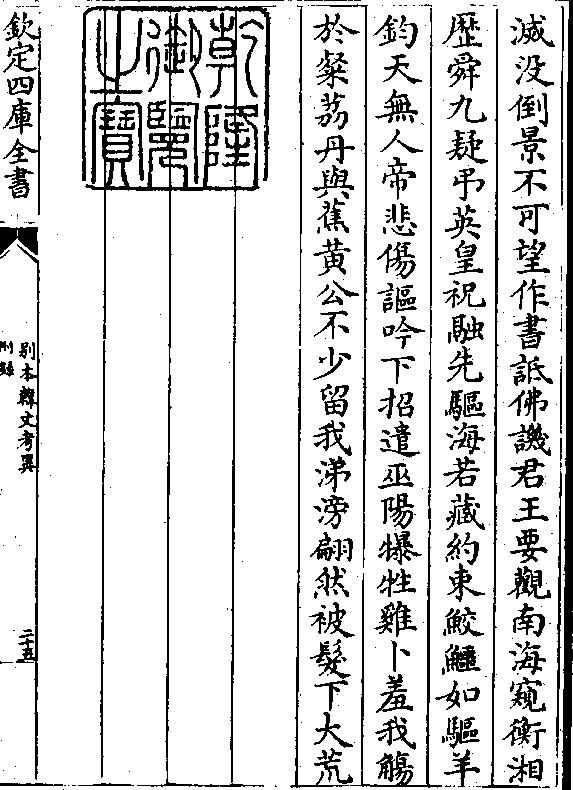 滅没倒景不可望作書詆佛譏君王要觀南海窺衡湘
歴舜九疑弔英皇祝融先驅海若藏約束鮫鱷如驅羊
鈞天無人帝悲傷謳吟下招遣巫陽犦牲雞卜羞我觴
於粲荔丹與蕉黄公不少留我涕滂翩然被髮下大荒
乾隆御覽之寶
欽定四庫全書
别本韓文考異
附録
二十五